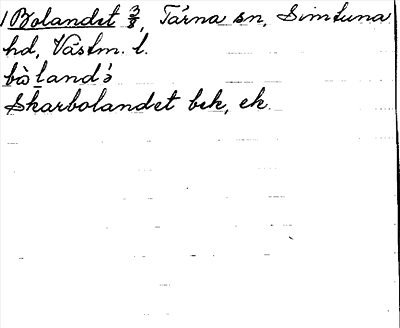 1 Bolandet 3/8, Tärna sn, Simtuna
hd, Västm. l.
bò̀land´s
Skarbolandet bek, ek.